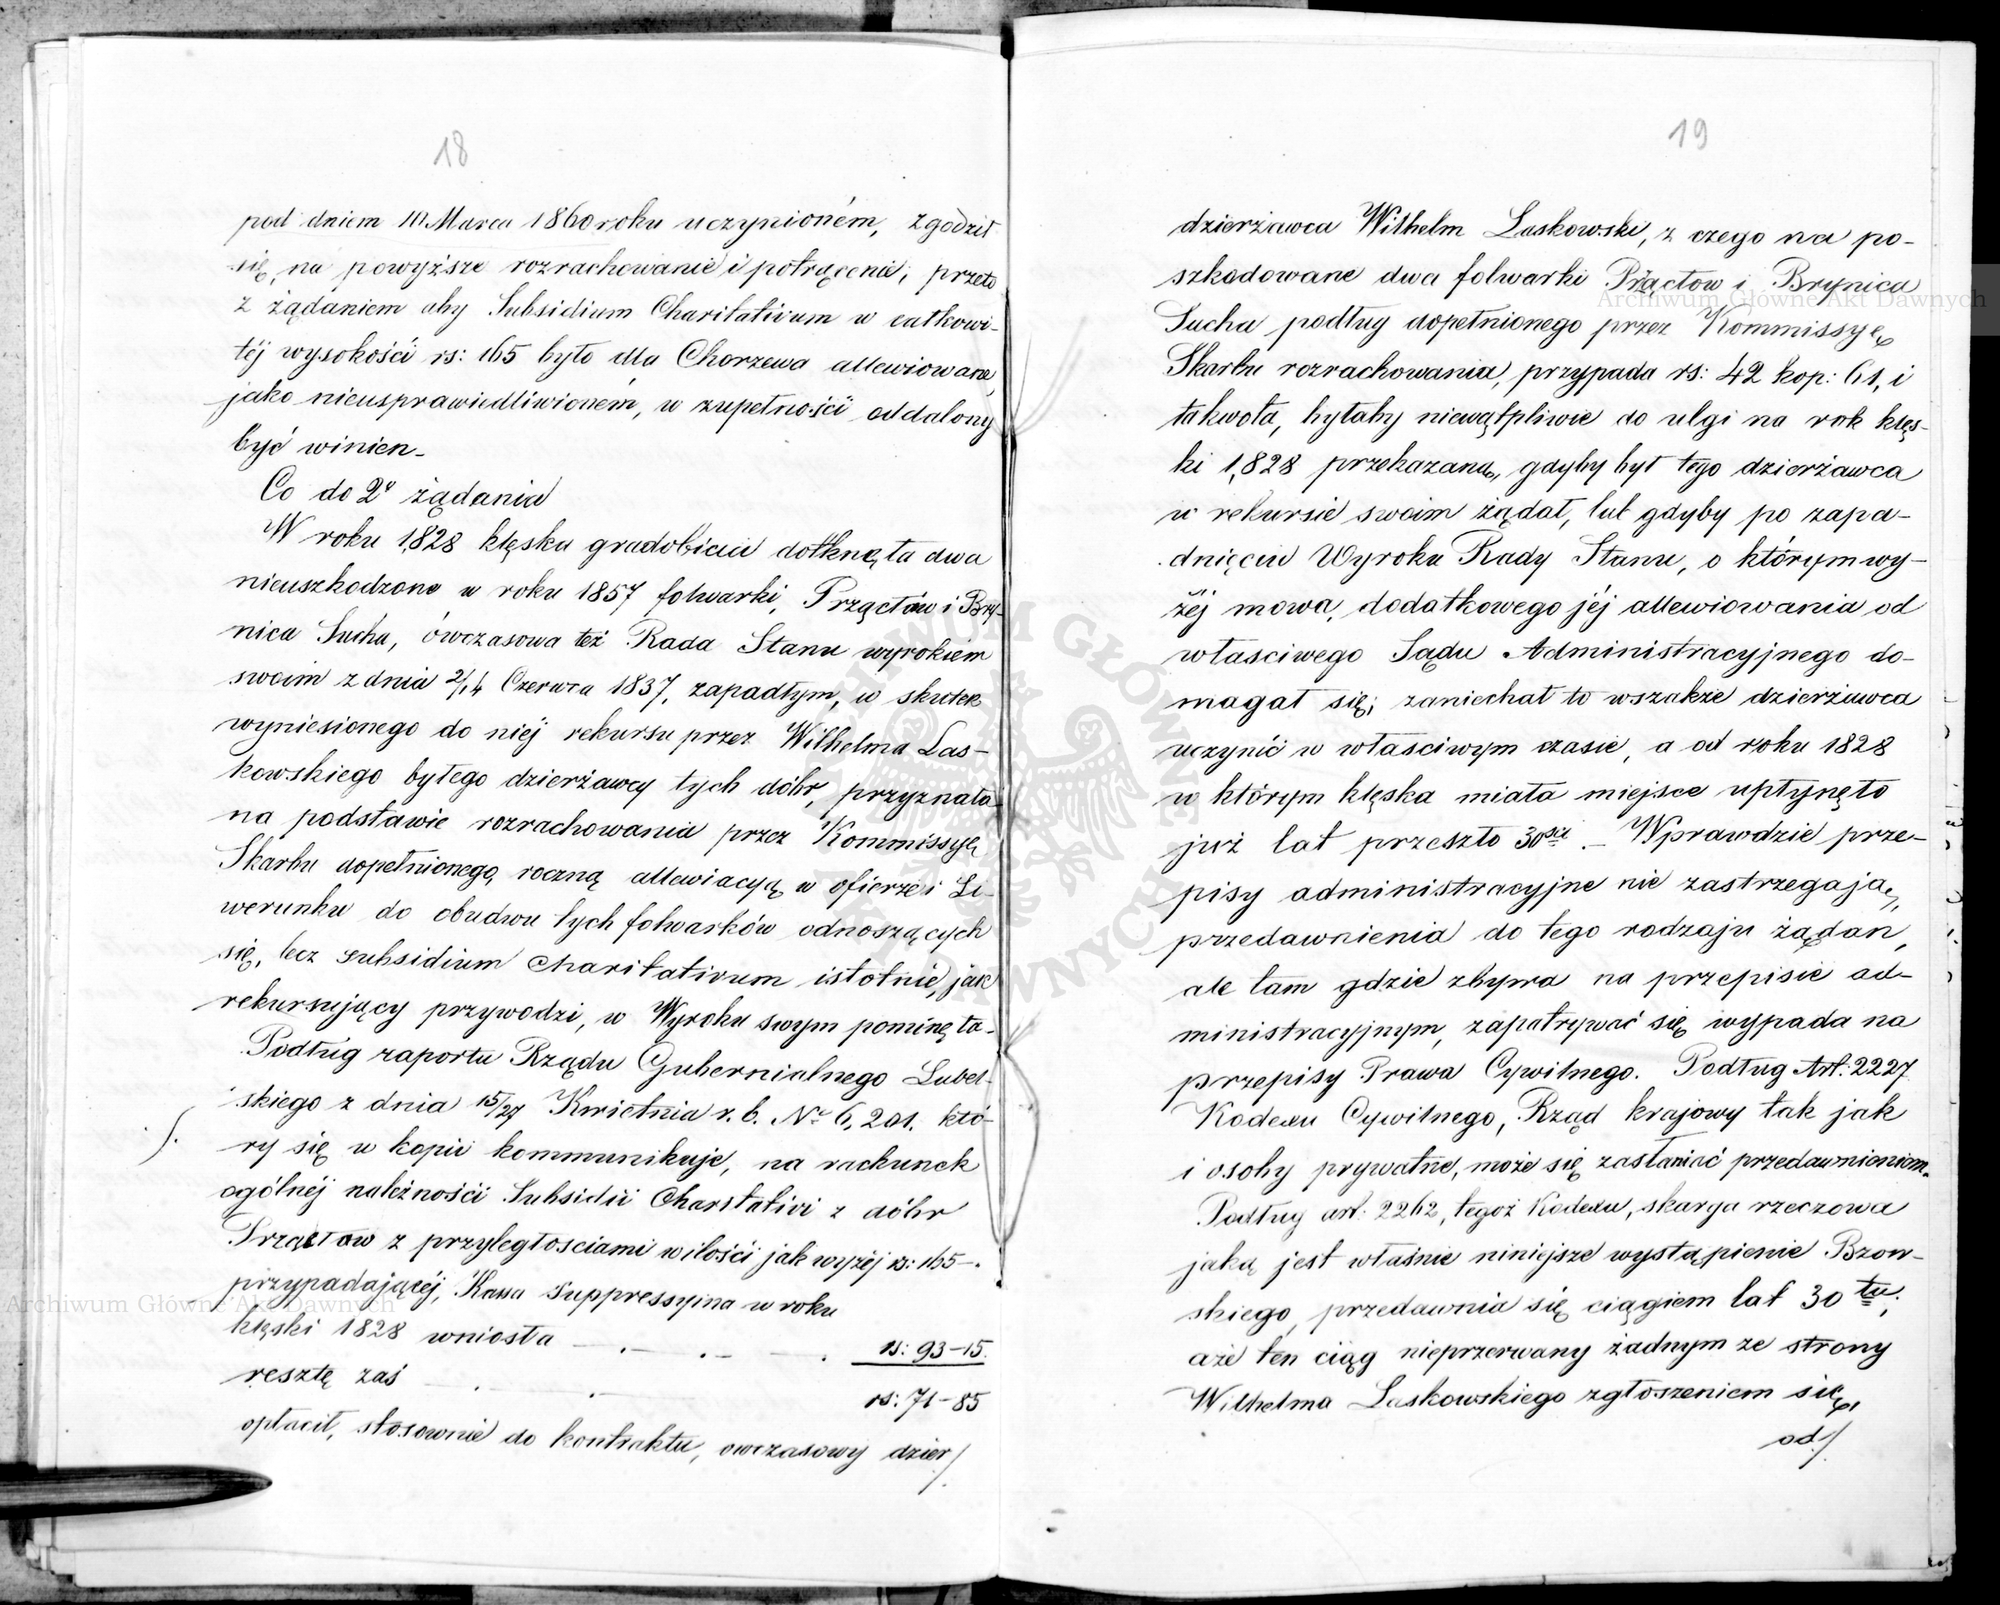 18
pod dniem 10 Marca 1860 roku uczynioném, zgodził
się, na powyższe rozrachowanie i potrącenia, przeto
z żądaniem aby Subsidium Charitativum w całkowi-
téj wysokości rs: 165 było dla Chorzewa allewiowane,
jako nieusprawiedliwioném, w zupełności oddalony
być winien –
Co do 2º żądania
W roku 1828 klęska gradobicia dotknęła dwa
nieuszkodzone w roku 1857 folwarki, Przęctów i Bry-
nica Sucha, ówczasowa też Rada Stanu wyrokiem
swoim z dnia 2/14 Czerwca 1837, zapadłym, w skutek
wyniesionego do niéj rekursu przez Wilhelma Las-
kowskiego byłego dzierżawcy tych dóbr, przyznała
na podstawie rozrachowania przez Kommissyę
Skarbu dopełnionego, roczną allewiacyą w ofierze i Li-
werunku do obudwu tych folwarków odnoszących
się, lecz subsidium charitativum istotnie, jak
rekursujący przywodzi, w Wyroku swym pominęła –
Podług raportu Rządu Gubernialnego Lubel-
skiego z dnia 15/27 Kwietnia r. b. Nº 6,201. któ-
ry się w kopii kommunikuje, na rachunek
ogólnéj należności Subsidii Charitativi z dóbr
Przęctów z przyległosciami w ilości jak wyżéj rs: 165 –.
przypadającéj, Kassa Suppressyina w roku
klęski 1828 wniosła — . — . — . rs: 93–15.
resztę zaś — . — . — rs: 71–85
opłacił, stosownie do kontraktu, owczasowy dzier/
19
dzierżawca Wilhelm Laskowski, z czego na po-
szkodowane dwa folwarki Przęctow i Brynica
Sucha podług dopełnionego przez Kommissyę
Skarbu rozrachowania, przypada rs: 42 kop: 61, i
ta kwota, byłaby niewątpliwie do ulgi na rok klęs-
ki 1,828 przekazaną, gdyby był tego dzierżawca
w rekursie swoim żądał, lub gdyby po zapa-
dnięciu Wyroku Rady Stanu, o którym wy-
żéj mowa, dodatkowego jéj allewiowania od
własciwego Sądu Administracyjnego do-
magał się; zaniechał to wszakże dzierżawca
uczynić w własciwym czasie, a od roku 1828
w którym klęska miała miejsce upłynęło
już lat przeszło 30sci. – Wprawdzie prze-
pisy administracyjne nie zastrzegają,
przedawnienia do tego rodzaju żądan,
ale tam gdzie zbywa na przepisie ad-
ministracyjnym, zapatrywać się wypada na
przepisy Prawa Cywilnego. Podług Art: 2227
Kodexu Cywilnego, Rząd krajowy tak jak
i osoby prywatne, może się zasłaniać przedawnieniem.
Podług art: 2262, tegoż Kodexu, skarga rzeczowa
jaką jest właśnie niniejsze wystąpienie Bzow-
skiego, przedawnia się ciągiem lat 30tu;
a że ten ciąg nieprzerwany żadnym ze strony
Wilhelma Laskowskiego zgłoszeniem się,
od/
Archiwum Główne Akt Dawnych
Archiwum Główne Akt Dawnych
ARCHIWUM GŁÓWNE AKT DAWNYCH